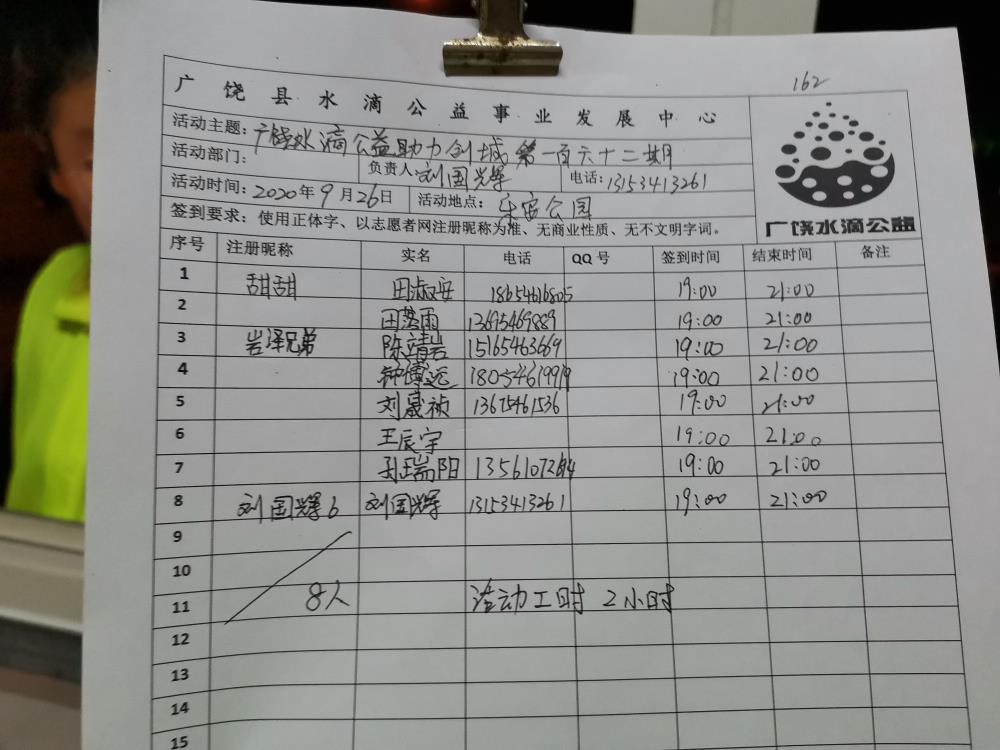 162
广饶县水滴公益事业发展中心
活动主题：广饶水滴公益助力创城第一百六十二期
活动部门： 负责人 刘国辉 电话：13153413261
活动时间：2020年9月26日 活动地点：乐安公园
签到要求：使用正体字、以志愿者网注册昵称为准、无商业性质、无不文明字词。
广饶水滴公益
序号 注册昵称 实名 电话 QQ号 签到时间 结束时间 备注
1 甜甜 田淑安 18654616805 19:00 21:00
2 13695469889 19:00 21:00
3 岩泽兄弟 陈靖岩 15165463669 19:00 21:00
4 钟博远 18054619919 19:00 21:00
5 刘晟祯 13675461536 19:00 21:00
6 王辰宇 19:00 21:00
7 孙瑞阳 19:00 21:00
8 刘国辉6 刘国辉 13153413261 19:00 21:00
9
10
11 8人 活动工时 2小时
12
13
14
15